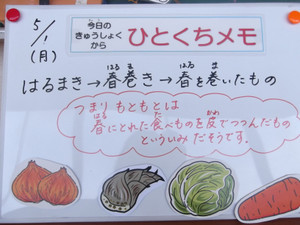 5/1
(月)
今日の
きゅうしょく
から
ひとくちメモ
はるまき→春巻き→春を巻いたもの
はる ま
はる ま
つまり もともとは
はる
春にとれた食べものを皮でつつんだもの
た かわ
といういみ だそうです。